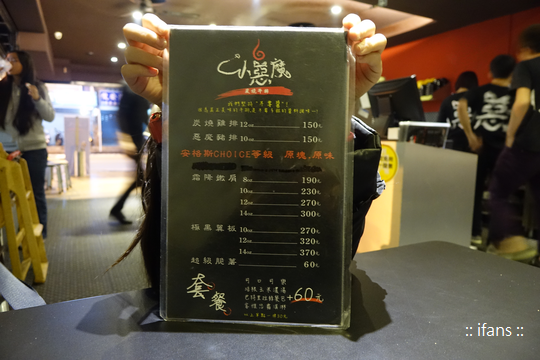 小惡魔
炭燒牛排
炭燒雞排 12oz 150元
惡魔豬排 10oz 150元
安格斯CHOICE等級 原塊.原味
霜降嫩肩 8oz 190元
10oz 230元
12oz 270元
14oz 300元
極黑翼板 10oz 270元
12oz 320元
14oz 370元
超級脆薯 60元
套餐
可口可樂
+60元
:: ifans ::